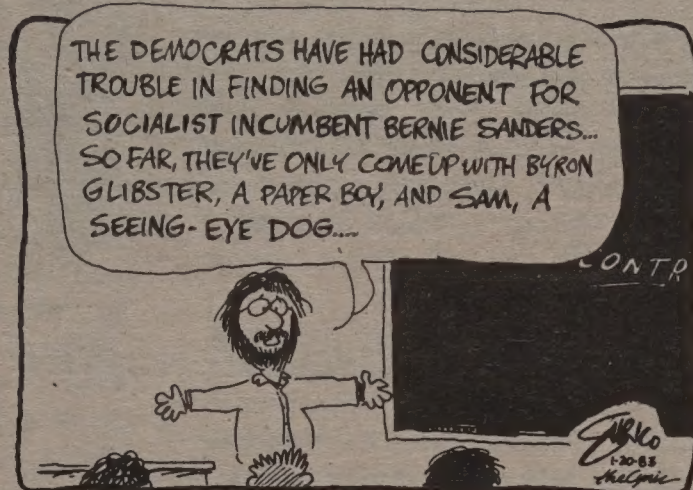 THE DEMOCRATS HAVE HAD CONSIDERABLE
TROUBLE IN FINDING AN OPPONENT FOR
SOCIALIST INCUMBENT BERNIE SANDERS...
SO FAR, THEY'VE ONLY COME UP WITH BYRON
GLIBSTER, A PAPER BOY, AND SAM, A
SEEING-EYE DOG....
CONTR
1-20-83
the Cynic